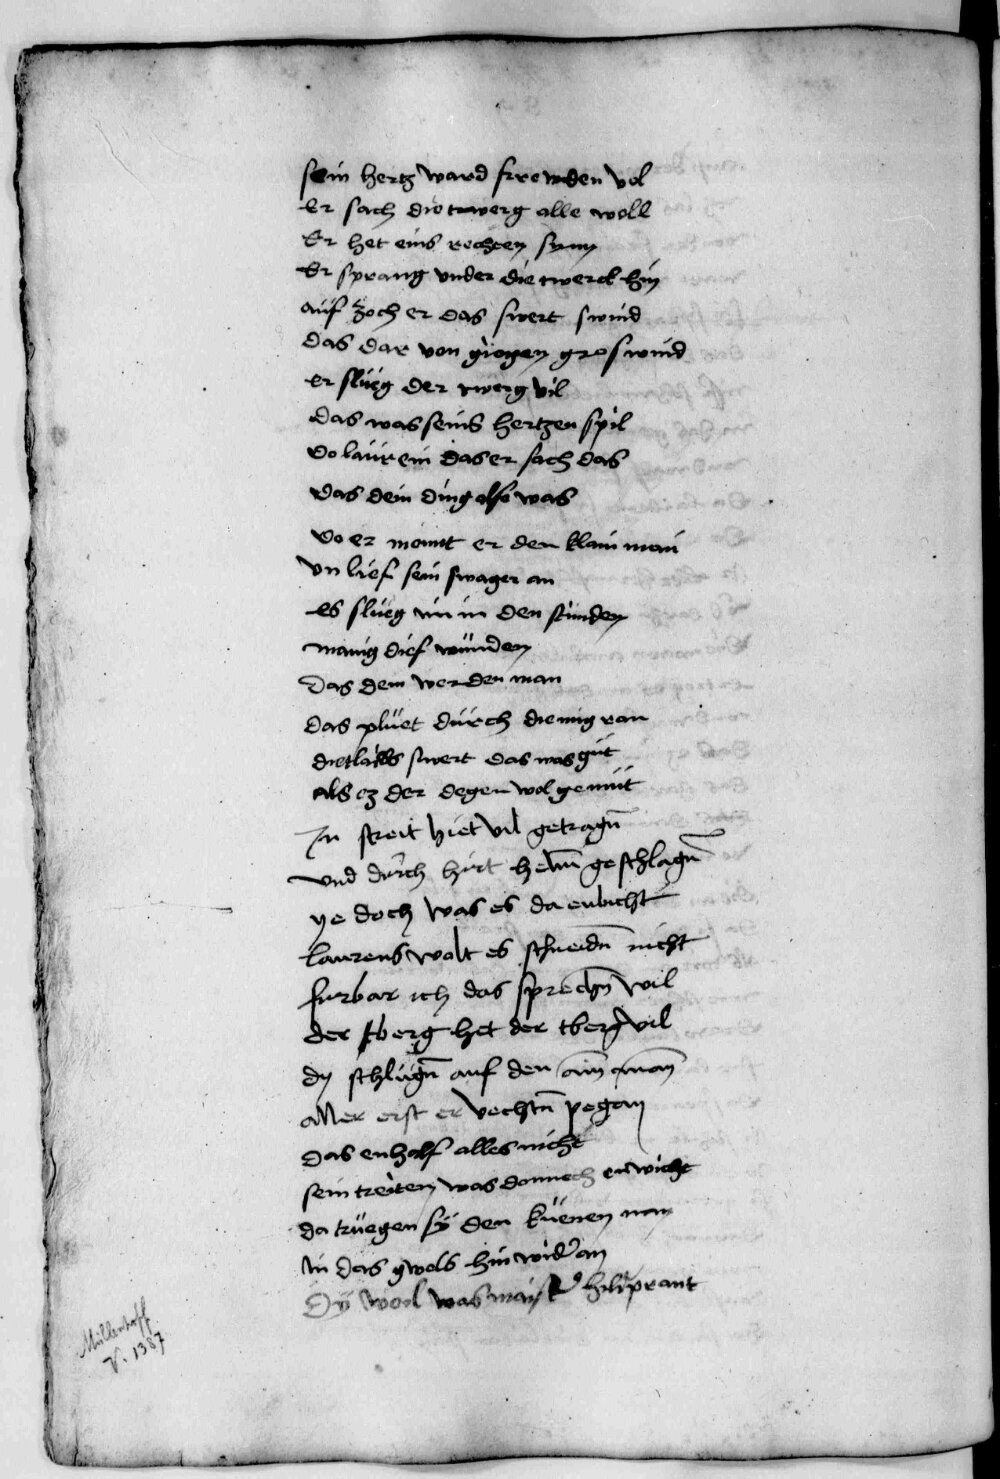 sein hertz ward frewden vol
Er sach die twerg alle woll
Er het eins rechten synn
Er sprang vnder die twerck hin
auf zoch er das swert swind
das dar von giegen gros wind
er slueg der twerg vil
das was seins hertzen spil
do laurein das er sach das
das dem ding also was
do er meint er den klain man
vn lief sein swager an
es slueg im in den stunden
manig dief wunden
Das dem werden man
das pluet durch die ring ran
dietlaibs swert das was güt
als ez der degen wol gemüt
In streit hiet vil getragn̄
vnd durch hirt helm̄ geschlagn̄
ye doch was es da enbicht
laurens wolt es schneidn̄ nicht
furbar ich das sprechn̄ wil
der tberg het der tberg vil
dy schlugn̄ auf den ain man
aller erst er vechtn̄ pegan
das enhalf alles nicht
sein streiten was dannoch enwicht
da truegen sÿ den küenen man
in das gwelb hin wider an
Dÿ weil was maister hiltprant
Müllenhoff
V. 1387